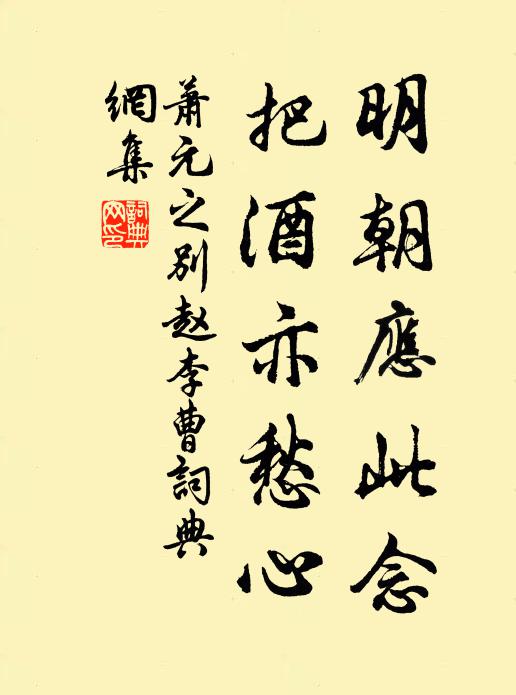 明朝應此念
把酒亦愁心
蕭元之別赵李曹詞典
網集
詞典
网印